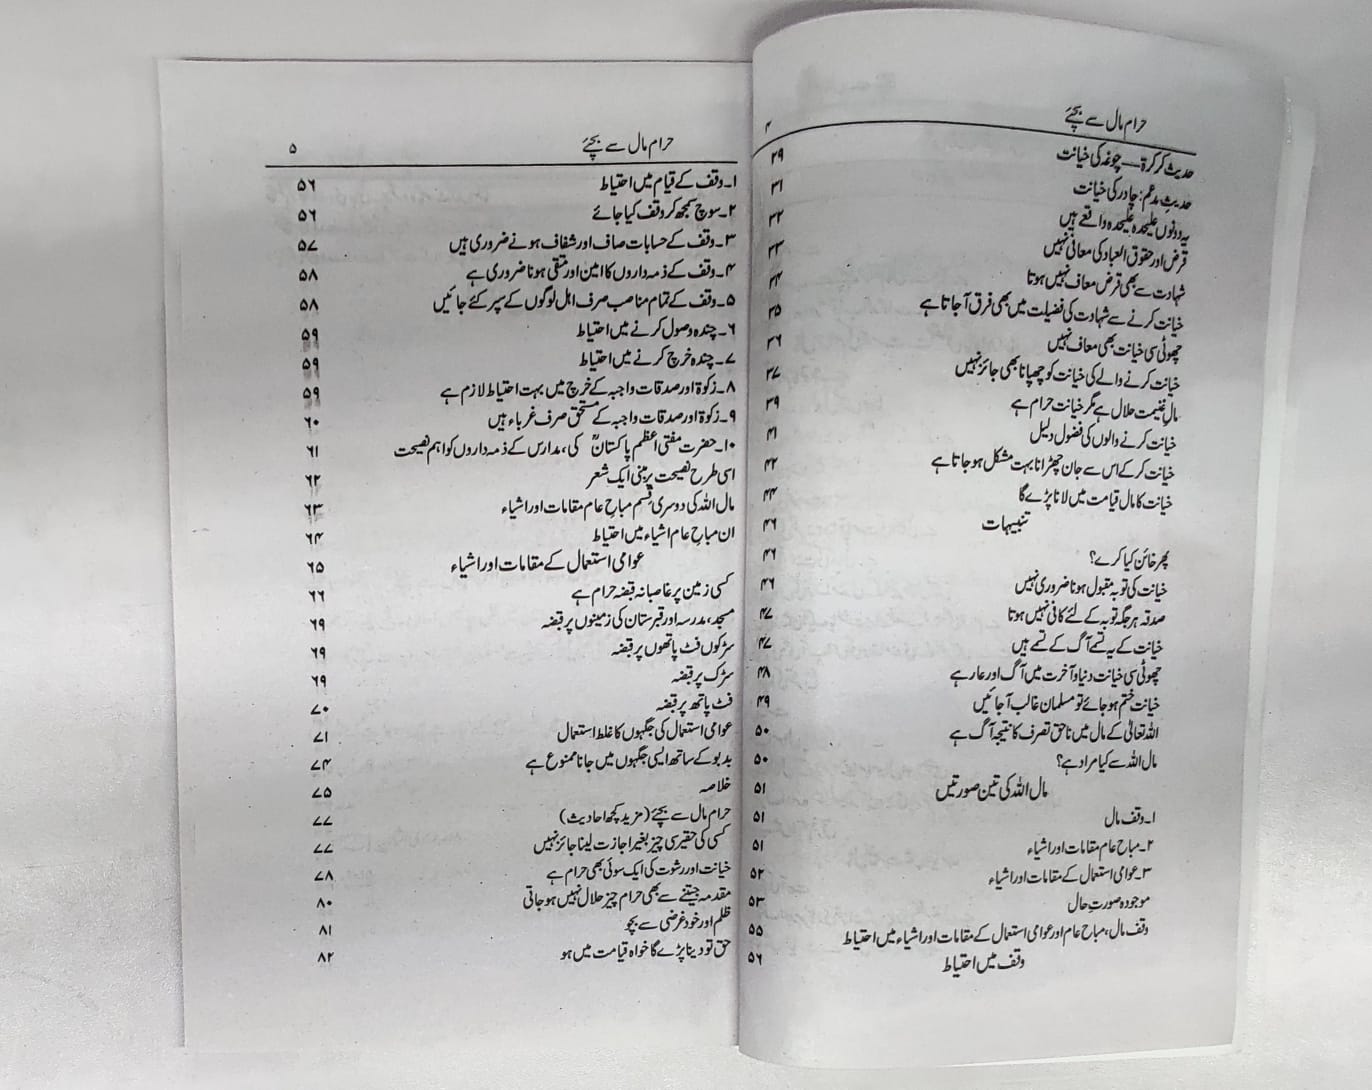 حرام مال سے بچئے ۴
حدیث کرکرۃ — چوغہ کی خیانت ۲۹
حدیثِ مدعم: چادر کی خیانت ۳۱
یہ دونوں علیحدہ علیحدہ واقعے ہیں ۳۲
قرض اور حقوق العباد کی معافی نہیں ۳۳
شہادت سے بھی قرض معاف نہیں ہوتا ۳۴
خیانت کرنے سے شہادت کی فضیلت میں بھی فرق آجاتا ہے ۳۵
چھوٹی سی خیانت بھی معاف نہیں ۳۶
خیانت کرنے والے کی خیانت کو چھپانا بھی جائز نہیں ۳۷
مالِ غنیمت حلال ہے مگر خیانت حرام ہے ۳۹
خیانت کرنے والوں کی فضول دلیل ۴۱
خیانت کرکے اس سے جان چھڑانا بہت مشکل ہوجاتا ہے ۴۲
خیانت کا مال قیامت میں لانا پڑے گا ۴۴
تنبیہات ۴۶
پھر خائن کیا کرے؟ ۴۶
خیانت کی توبہ مقبول ہونا ضروری نہیں ۴۶
صدقہ ہر جگہ توبہ کے لئے کافی نہیں ہوتا ۴۷
خیانت کے یہ تسمے آگ کے تسمے ہیں ۴۷
چھوٹی سی خیانت دنیا و آخرت میں آگ اور عار ہے ۴۸
خیانت ختم ہوجائے تو مسلمان غالب آجائیں ۴۹
اللہ تعالیٰ کے مال میں ناحق تصرف کا نتیجہ آگ ہے ۵۰
مال اللہ سے کیا مراد ہے؟ ۵۰
مال اللہ کی تین صورتیں ۵۱
۱۔ وقف مال ۵۱
۲۔ مباحِ عام مقامات اور اشیاء ۵۱
۳۔ عوامی استعمال کے مقامات اور اشیاء ۵۲
موجودہ صورتِ حال ۵۳
وقف مال، مباح عام اور عوامی استعمال کے مقامات اور اشیاء میں احتیاط ۵۵
وقف میں احتیاط ۵۶
حرام مال سے بچئے ۵
۱۔ وقف کے قیام میں احتیاط ۵۶
۲۔ سوچ سمجھ کر وقف کیا جائے ۵۶
۳۔ وقف کے حسابات صاف اور شفاف ہونے ضروری ہیں ۵۷
۴۔ وقف کے ذمہ داروں کا امین اور متقی ہونا ضروری ہے ۵۸
۵۔ وقف کے تمام مناصب صرف اہل لوگوں کے سپر کئے جائیں ۵۸
۶۔ چندہ وصول کرنے میں احتیاط ۵۹
۷۔ چندہ خرچ کرنے میں احتیاط ۵۹
۸۔ زکوٰۃ اور صدقات واجبہ کے خرچ میں بہت احتیاط لازم ہے ۵۹
۹۔ زکوٰۃ اور صدقات واجبہ کے مستحق صرف غرباء ہیں ۶۰
۱۰۔ حضرت مفتی اعظم پاکستانؒ کی، مدارس کے ذمہ داروں کو اہم نصیحت ۶۱
اسی طرح نصیحت پر مبنی ایک شعر ۶۲
مال اللہ کی دوسری قسم مباحِ عام مقامات اور اشیاء ۶۳
ان مباحِ عام اشیاء میں احتیاط ۶۴
عوامی استعمال کے مقامات اور اشیاء ۶۵
کسی زمین پر غاصبانہ قبضہ حرام ہے ۶۶
مسجد، مدرسہ اور قبرستان کی زمینوں پر قبضہ ۶۹
سڑکوں فٹ پاتھوں پر قبضہ ۶۹
سڑک پر قبضہ ۶۹
فٹ پاتھ پر قبضہ ۷۰
عوامی استعمال کی جگہوں کا غلط استعمال ۷۱
بدبو کے ساتھ ایسی جگہوں میں جانا ممنوع ہے ۷۴
خلاصہ ۷۵
حرام مال سے بچئے (مزید کچھ احادیث) ۷۷
کسی کی حقیر سی چیز بغیر اجازت لینا جائز نہیں ۷۷
خیانت اور رشوت کی ایک سوئی بھی حرام ہے ۷۸
مقدمہ جیتنے سے بھی حرام چیز حلال نہیں ہوجاتی ۸۰
ظلم اور خود غرضی سے بچو ۸۱
حق تو دینا پڑے گا خواہ قیامت میں ہو ۸۲